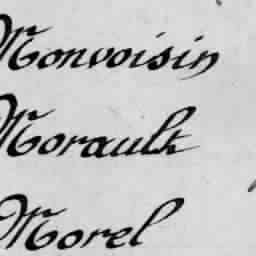 Monvoisin
Morault
Morel